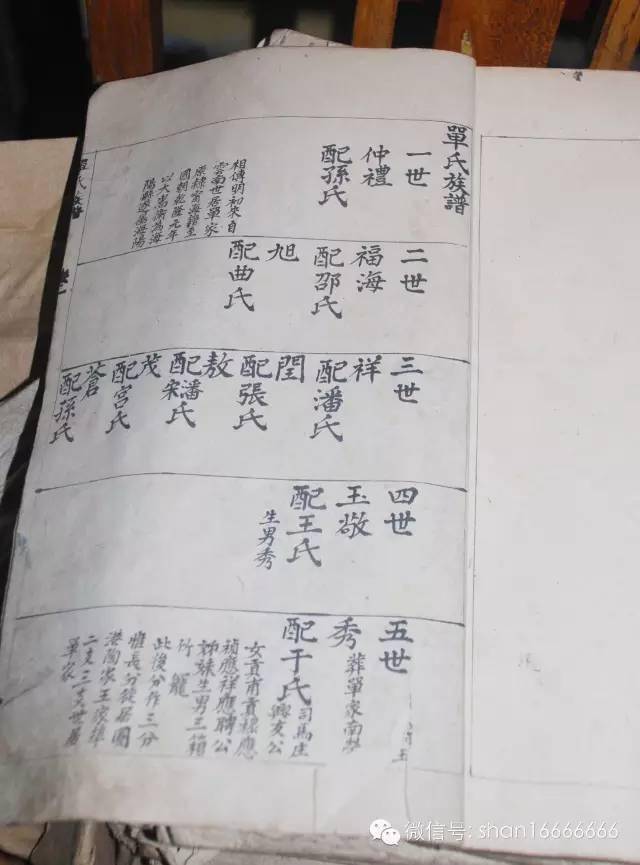 單氏族譜
一世
仲禮
配孫氏
相傳明初來自
雲南世居單家
原隸甯海雍
國朝乾隆元年
以大嵩衛為海
陽縣
二世
福海
配邵氏
旭
配曲氏
三世
祥
配潘氏
閏
配張氏
敖
配潘宋氏
茂
配宮氏
蒼
配孫氏
四世
玉敬
配王氏
生男秀
五世
秀
葬單家南
配于氏
司馬庄
興友公
女貢甫貢禄應
禎應祥應聘公
姊妹生男三箱
竹籠
此後分作三分
雅長分徙居圈
港陶家王家
二支三支世居
單家
微信号: shan16666666